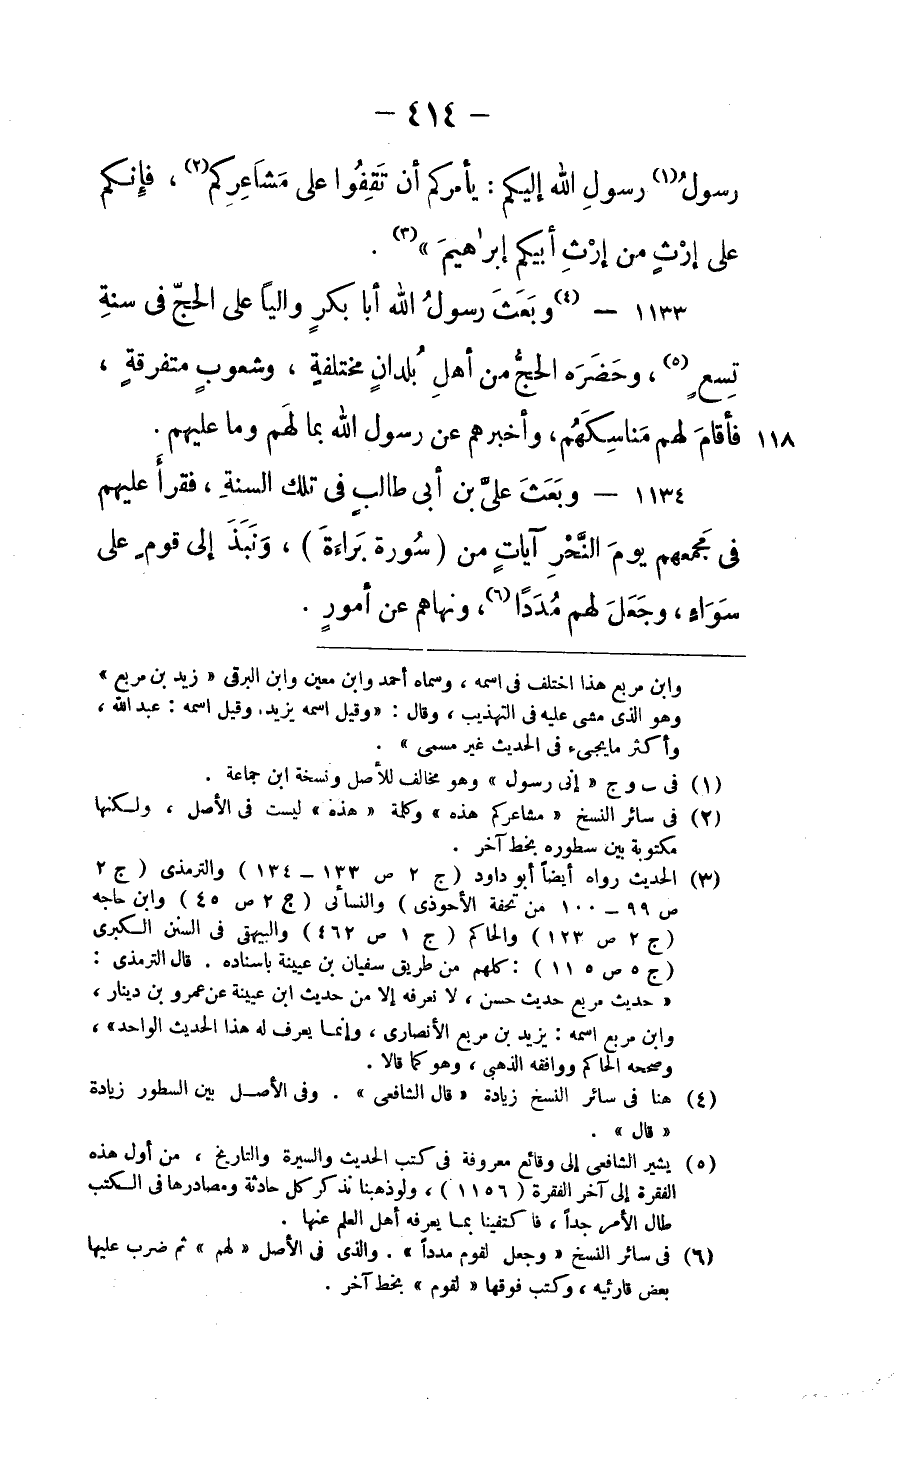 — ٤١٤ —
رسولُ(١) رسولِ الله إليكم : يأمركم أن تَقِفُوا على مَشَاعِرِكم(٢) ، فإنكم
على إرْثٍ من إرْثِ أبيكم إبرٰهيمَ »(٣) .
١١٣٣ — (٤)وبَعَثَ رسولُ الله أبا بكرٍ والياً على الحجّ فى سنةِ
تِسعٍ(٥) ، وحَضَرَه الحجُّ من أهلِ بُلدانٍ مختلفةٍ ، وشعوبٍ متفرقةٍ ،
١١٨ فأقامَ لهم مَناسِكَهُم ، وأخبرهم عن رسول الله بما لهَم وما عليهم .
١١٣٤ — وبَعَثَ علىَّ بن أبى طالبٍ فى تلك السنةِ ، فقرأَ عليهم
فى مَجْمعهم يومَ النَّحْرِ آياتٍ من ( سُورة بَراءةَ ) ، ونَبَذَ إلى قومٍ على
سَوَاءٍ ، وجَعَلَ لهم مُدَدًا(٦) ، ونهاهم عن أمورٍ .
وابن مربع هذا اختلف فى اسمه ، وسماه أحمد وابن معين وابن البرقى « زيد بن مربع »
وهو الذى مشى عليه فى التهذيب ، وقال : « وقيل اسمه يزيد . وقيل اسمه : عبد الله ،
وأكثر مايجىء فى الحديث غير مسمى » .
(١) فى ب و ج « إنى رسول » وهو مخالف للأصل ونسخة ابن جماعة .
(٢) فى سائر النسخ « مشاعركم هذه » وكلمة « هذه » ليست فى الأصل ، ولكنها
مكتوبة بين سطوره بخط آخر .
(٣) الحديث رواه أيضاً أبو داود ( ج ٢ ص ١٣٣ – ١٣٤ ) والترمذى ( ج ٢
ص ٩٩ – ١٠٠ من تحفة الأحوذى ) والنسائى ( ج ٢ ص ٤٥ ) وابن ماجه
( ج ٢ ص ١٢٣ ) والحاكم ( ج ١ ص ٤٦٢ ) والبيهقى فى السنن الكبرى
( ج ٥ ص ١١٥ ) : كلهم من طريق سفيان بن عيينة باسناده . قال الترمذى :
« حديث مربع حديث حسن ، لا نعرفه إلا من حديث ابن عيينة عن عمرو بن دينار ،
وابن مربع اسمه : يزيد بن مربع الأنصارى ، وإنما يعرف له هذا الحديث الواحد » ،
وصححه الحاكم ووافقه الذهبى ، وهو كما قالا .
(٤) هنا فى سائر النسخ زيادة « قال الشافعى » . وفى الأصل بين السطور زيادة
« قال » .
(٥) يشير الشافعى إلى وقائع معروفة فى كتب الحديث والسيرة والتاريخ ، من أول هذه
الفقرة إلى آخر الفقرة ( ١١٥٦ ) ، ولوذهبنا نذكر كل حادثة ومصادرها فى الكتب
طال الأمر جداً ، فاكتفينا بما يعرفه أهل العلم عنها .
(٦) فى سائر النسخ « وجعل لقوم مدداً » . والذى فى الأصل « لهم » ثم ضرب عليها
بعض قارئيه ، وكتب فوقها « لقوم » بخط آخر .